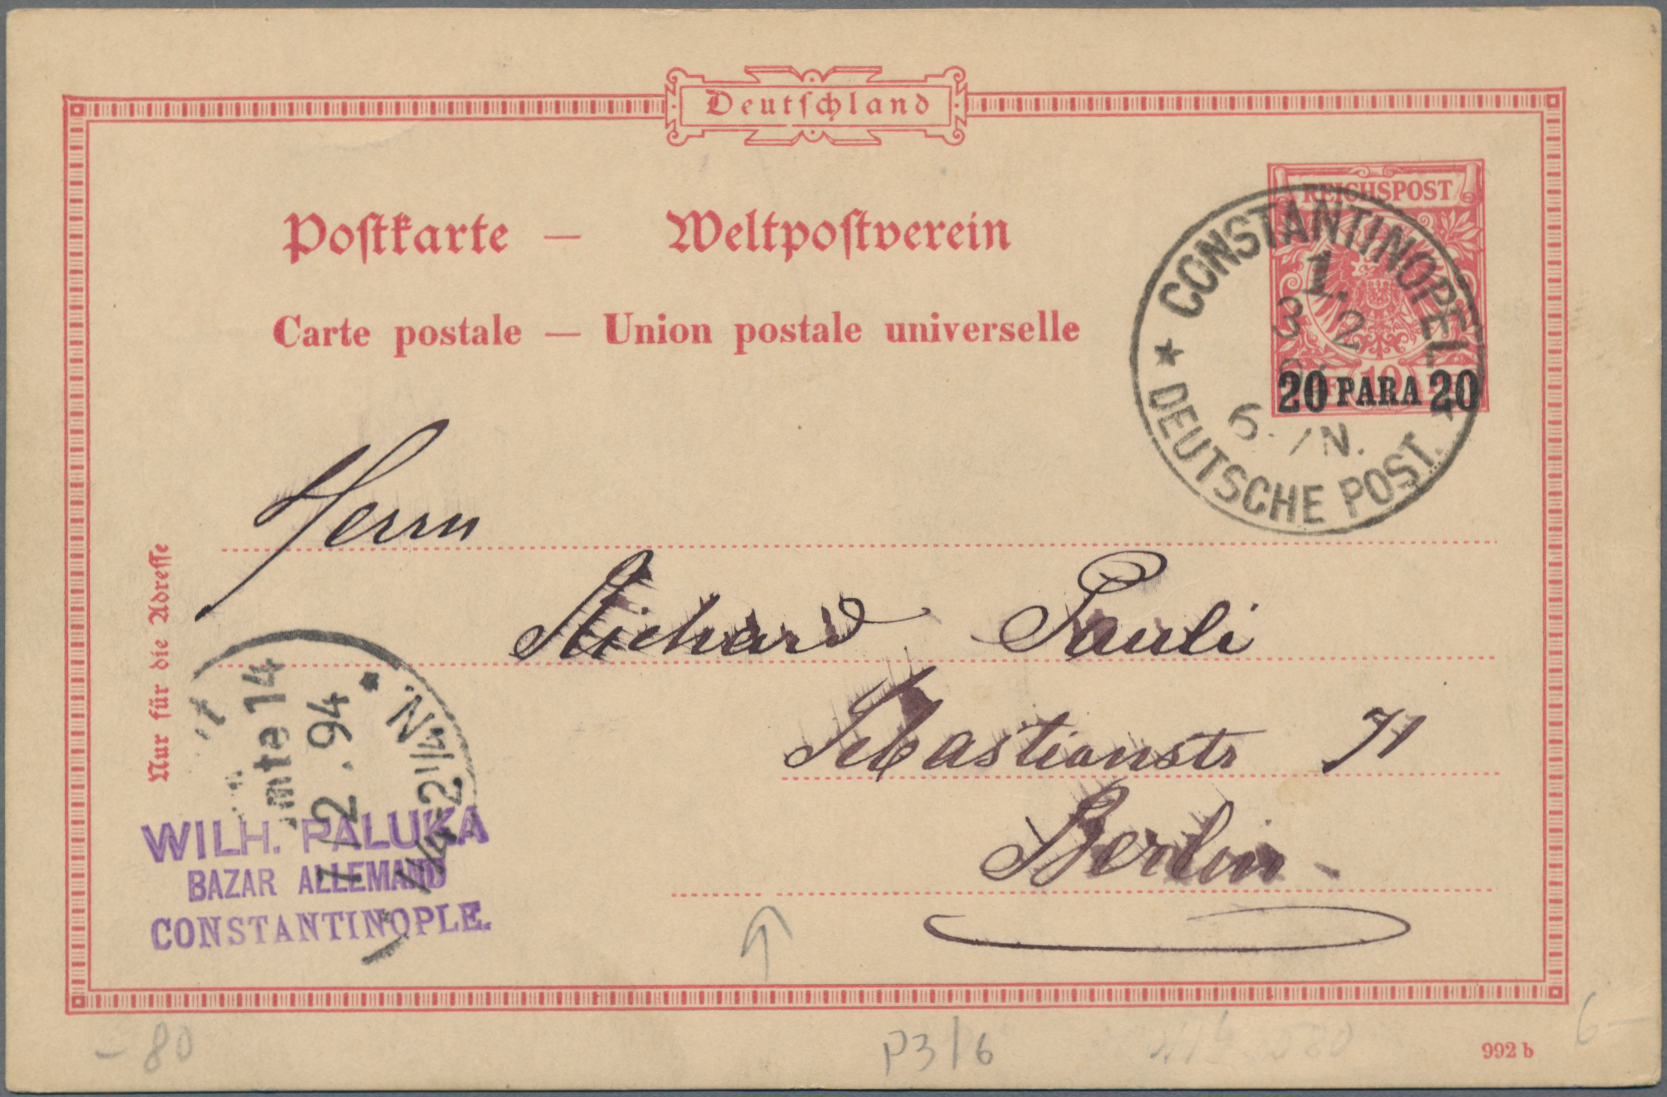 Deutschland
REICHSPOST
Postkarte — Weltpostverein
Carte postale — Union postale universelle
CONSTANTINOPEL 1.
3 2
6-7N.
★ DEUTSCHE POST. ★
10
20 PARA 20
Herrn
Richard Pauli
Sebastianstr 71
Berlin
Nur für die Adresse
14
7/2.94
1¼-2½N. *
WILH. PALUKA
BAZAR ALLEMAND
CONSTANTINOPLE.
- 80
P3/6
992 b
6-